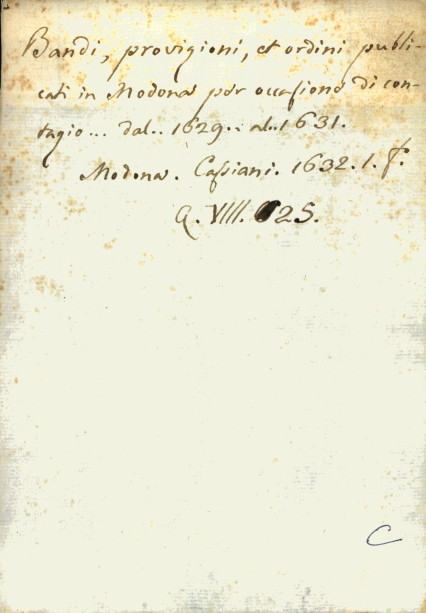 Bandi, provigioni, et ordini publi-
cati in Modona per occasione di con-
tagio... dal.. 1629.. al.. 1631.
Modona. Cassiani. 1632. 1. f.
Q. VIII. 25.
C